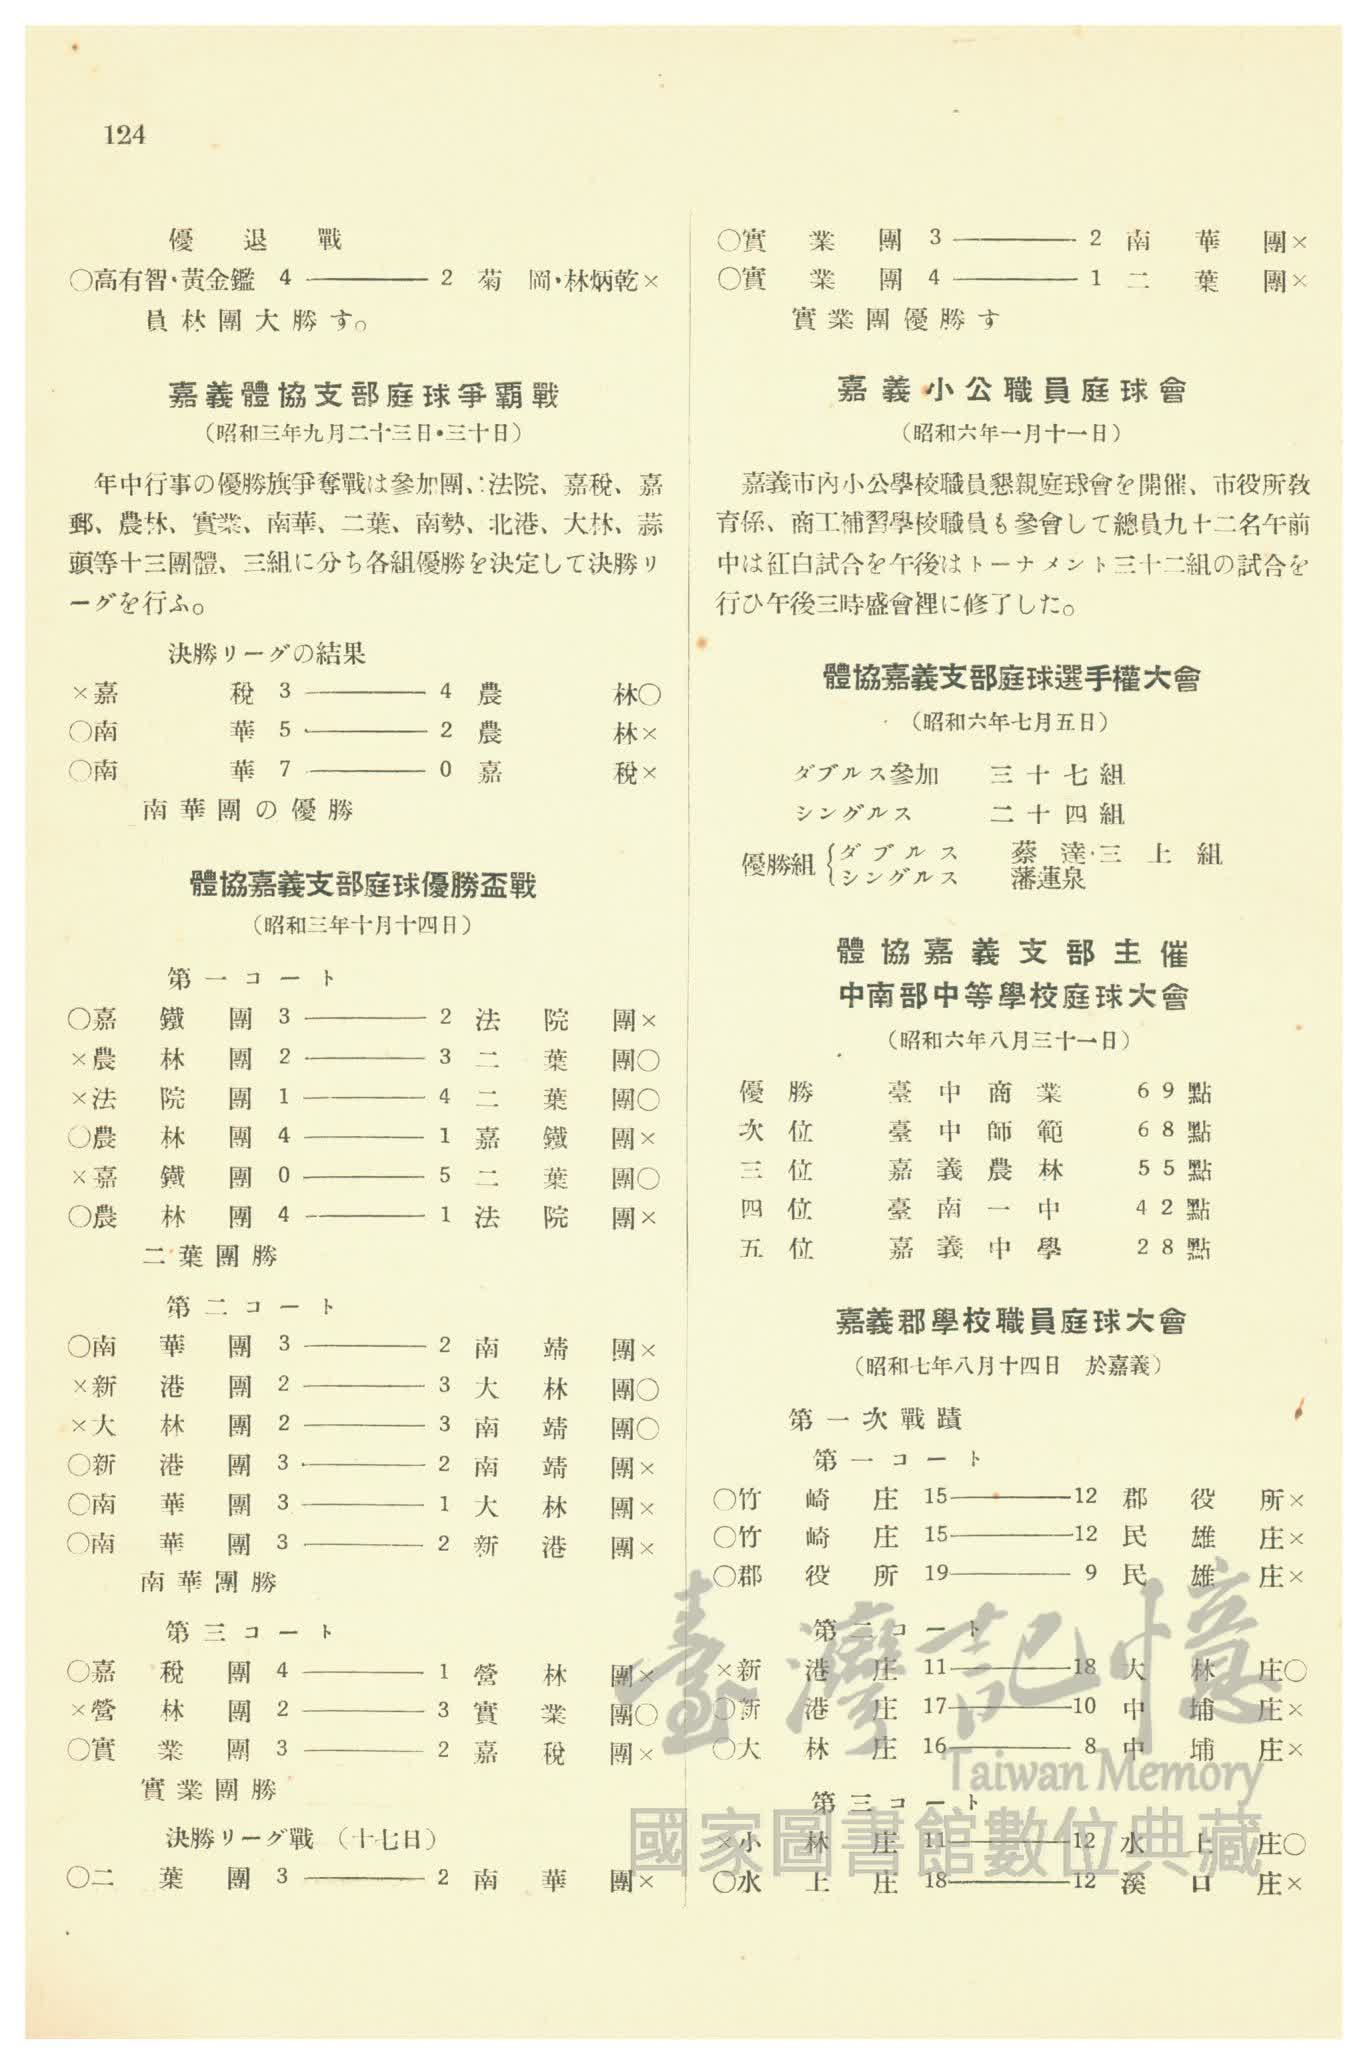 124
優退戰
○高有智·黃金鑑 4 ——— 2 菊岡·林炳乾×
員林團大勝す。
嘉義體協支部庭球爭覇戰
（昭和三年九月二十三日•三十日）
年中行事の優勝旗爭奪戰は參加團、法院、嘉稅、嘉
郵、農林、實業、南華、二葉、南勢、北港、大林、蒜
頭等十三團體、三組に分ち各組優勝を決定して決勝リ
ーグを行ふ。
決勝リーグの結果
×嘉稅 3 ——— 4 農林○
○南華 5 ——— 2 農林×
○南華 7 ——— 0 嘉稅×
南華團の優勝
體協嘉義支部庭球優勝盃戰
（昭和三年十月十四日）
第一コート
○嘉鐵團 3 ——— 2 法院團×
×農林團 2 ——— 3 二葉團○
×法院團 1 ——— 4 二葉團○
○農林團 4 ——— 1 嘉鐵團×
×嘉鐵團 0 ——— 5 二葉團○
○農林團 4 ——— 1 法院團×
二葉團勝
第二コート
○南華團 3 ——— 2 南靖團×
×新港團 2 ——— 3 大林團○
×大林團 2 ——— 3 南靖團○
○新港團 3 ——— 2 南靖團×
○南華團 3 ——— 1 大林團×
○南華團 3 ——— 2 新港團×
南華團勝
第三コート
○嘉稅團 4 ——— 1 營林團×
×營林團 2 ——— 3 實業團○
○實業團 3 ——— 2 嘉稅團×
實業團勝
決勝リーグ戰（十七日）
○二葉團 3 ——— 2 南華團×
○實業團 3 ——— 2 南華團×
○實業團 4 ——— 1 二葉團×
實業團優勝す
嘉義小公職員庭球會
（昭和六年一月十一日）
嘉義市內小公學校職員懇親庭球會を開催、市役所敎
育係、商工補習學校職員も參會して總員九十二名午前
中は紅白試合を午後はトーナメント三十二組の試合を
行ひ午後三時盛會裡に修了した。
體協嘉義支部庭球選手權大會
（昭和六年七月五日）
ダブルス參加 三十七組
シングルス 二十四組
優勝組 ダブルス 蔡達·三上組
シングルス 藩蓮泉
體協嘉義支部主催
中南部中等學校庭球大會
（昭和六年八月三十一日）
優勝 臺中商業 69點
次位 臺中師範 68點
三位 嘉義農林 55點
四位 臺南一中 42點
五位 嘉義中學 28點
嘉義郡學校職員庭球大會
（昭和七年八月十四日 於嘉義）
第一次戰蹟
第一コート
○竹崎庄 15——12 郡役所×
○竹崎庄 15——12 民雄庄×
○郡役所 19—— 9 民雄庄×
第二コート
×新港庄 11——18 大林庄○
○新港庄 17——10 中埔庄×
○大林庄 16—— 8 中埔庄×
第三コート
×小林庄 11——12 水上庄○
○水上庄 18——12 溪口庄×
臺灣記憶
Taiwan Memory
國家圖書館數位典藏